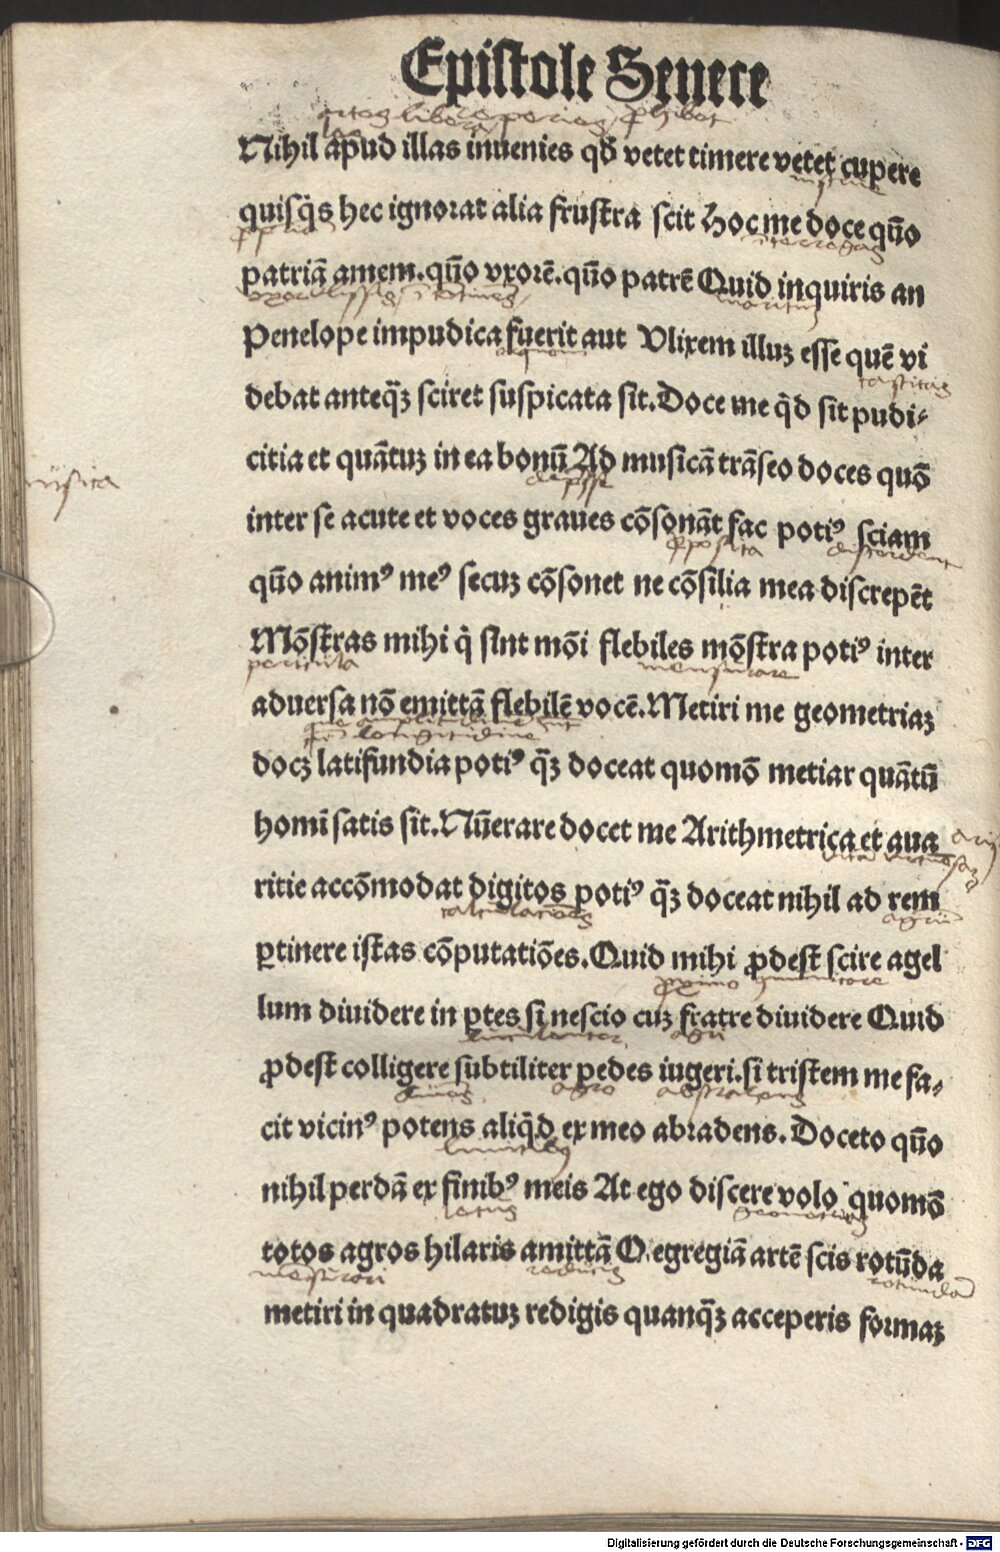 Epistole Senece
artes liberales reperies phibet
Nihil apud illas inuenies qđ vetet timere vetet cupere
quisq̃s hec ignorat alia frustra scit Hoc me doce quõ
interrogas
patriã amem. quõ vxorẽ. quõ patrẽ Quid inquiris an
maritus
Penelope impudica fuerit aut Vlixem illuʒ esse quẽ vi
castitas
debat anteq̃ʒ sciret suspicata sit. Doce me q̃d sit pudi⸗
citia et quãtuʒ in ea bonũ Ad musicã trãseo doces quõ
musica
inter se acute et voces graues cõsonãt fac potiꝰ sciam
discordent
quõ animꝰ meꝰ secuʒ cõsonet ne cõsilia mea discrepẽt
Mõstras mihi q̇ sint mõi flebiles mõstra potiꝰ inter
pericula mensurare
aduersa nõ emittã flebilẽ vocẽ. Metiri me geometriaʒ
longitudine
docʒ latifundia potiꝰ q̃ʒ doceat quomõ metiar quãtũ
homĩ satis sit. Nũerare docet me Arithmetrica et aua
ritie accõmodat digitos potiꝰ q̃ʒ doceat nihil ad rem
calculationes
ꝑtinere istas cõputatiões. Quid mihi ꝓdest scire agel
lum diuidere in ꝑtes si nescio cuʒ fratre diuidere Quid
agri
ꝓdest colligere subtiliter pedes iugeri. si tristem me fa⸗
diues agro
cit vicinꝰ potens aliq̃d ex meo abradens. Doceto quõ
nihil perdã ex finibꝰ meis At ego discere volo quomõ
letus
totos agros hilaris amittã O egregiã artẽ scis rotũda
mensurari reducis
metiri in quadratuʒ redigis quanq̃ʒ acceperis formaʒ
Digitalisierung gefördert durch die Deutsche Forschungsgemeinschaft - DFG